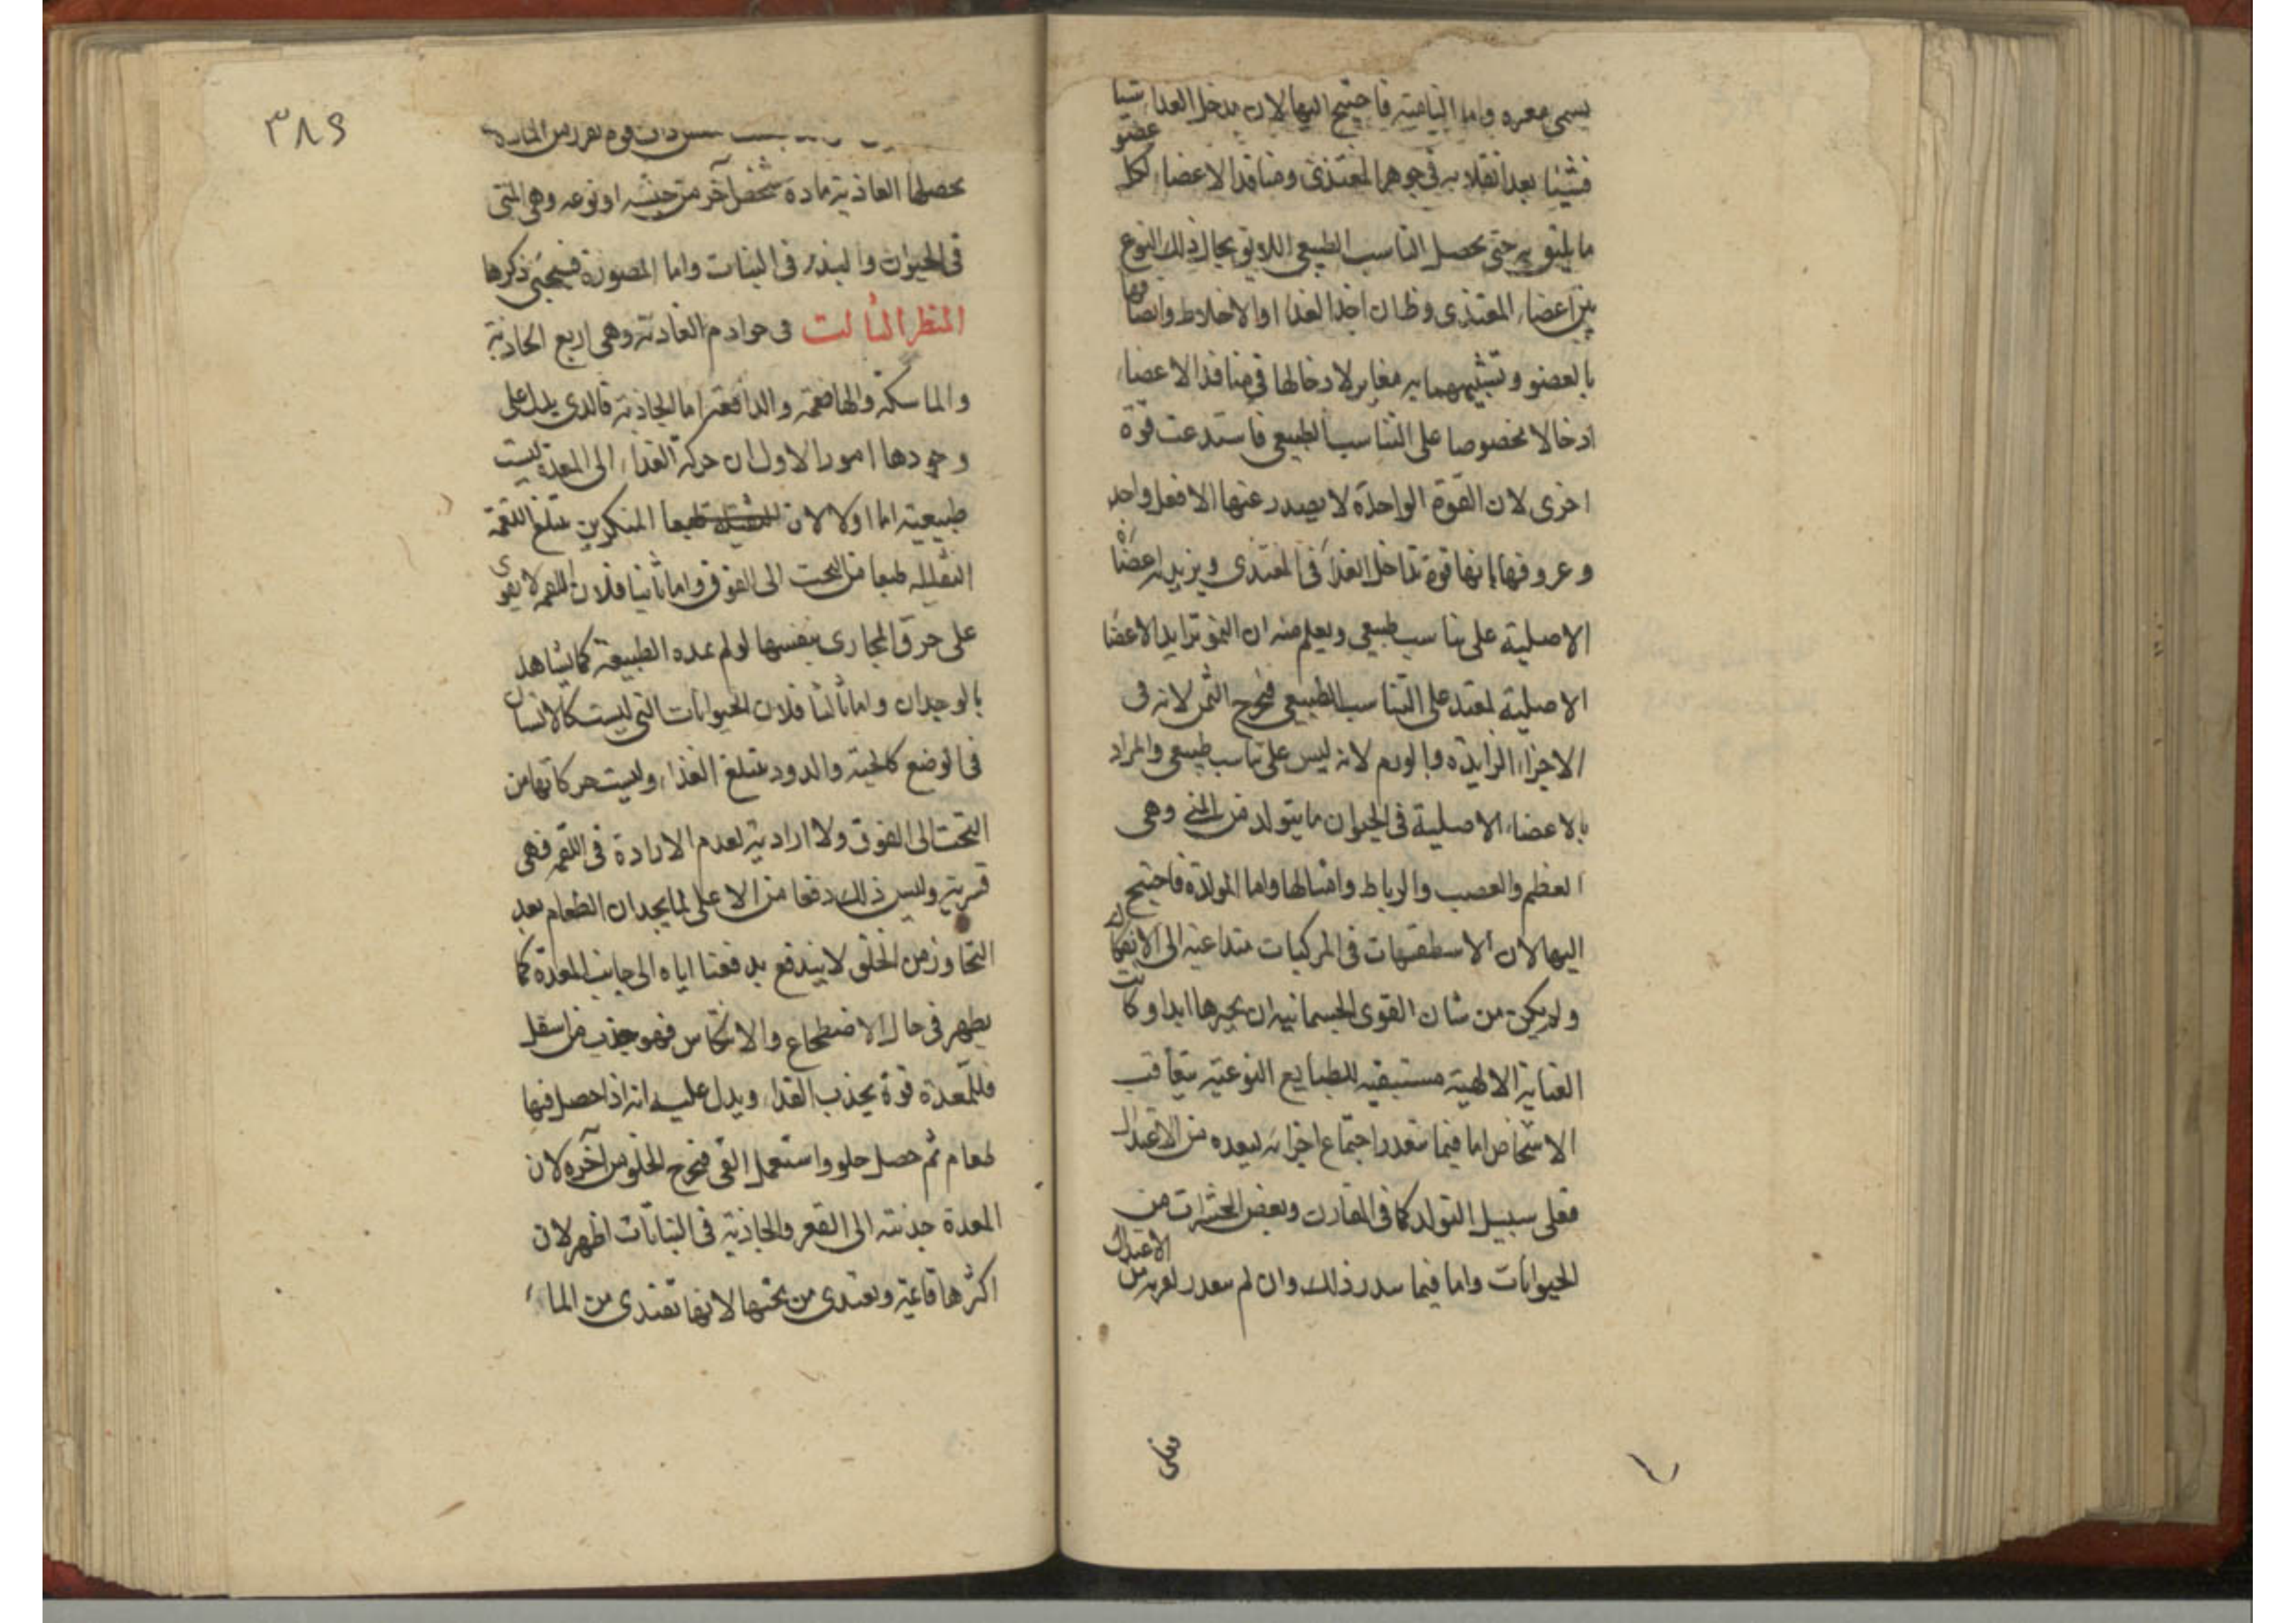 يسمى مغيرة واما النامية فاحتيج اليها لان يدخل الغذا شيا
فشيئا بعد انقلابه فى جوهر المغتذى ومنافذ الاعضاء لكل عضو
ما يليق به حتى يحصل التناسب الطبيعى اللايق بحال ذلك النوع
بين اعضاء المغتذى وظ ان اخذ الغذاء او الاخلاط والصاقها
بالعضو وتشبيههما به مغاير لادخالها فى منافذ الاعضاء
ادخالا مخصوصا على التناسب الطبيعى فاستدعت قوة
اخرى لان القوة الواحدة لا يصدر عنها الا فعل واحد
وعروفها بانها قوة تداخل الغذاء فى المغتذى ويزيد اعضاه
الاصلية على تناسب طبيعى ويعلم منه ان النمو تزايد الاعضا
الاصلية لمغتد على التناسب الطبيعى فخرج السمن لانه فى
الاجزاء الزايدة والورم لانه ليس على تناسب طبيعى والمراد
بالاعضاء الاصلية فى الحيوان ما يتولد من المنى وهى
العظم والعصب والرباط وامثالها واما المولدة فاحتيج
اليها لان الاسطقسات فى المركبات متداعية الى الانفكاك
ولم يكن من شان القوى الجسمانية ان يجبرها ابدا وكانت
العناية الالهية مستبقية للطبايع النوعية بتعاقب
الاشخاص اما فيما تعذر اجتماع اجزائه لبعده من الاعتدال
فعلى سبيل التولد كما فى الفارن وبعض الحشرات من
الحيوانات واما فيما ذلك وان لم يتعذر لقربه من الاعتدال
فعلى
٣٨٩
قوة تفرز من المادة
تحصلها الغاذية مادة شخص آخر من جنسه او نوعه وهى المنى
فى الحيوان والبذر فى النبات واما المصورة فسيجئ ذكرها
المنظر الثالث فى خوادم الغاذية وهى اربع الجاذبة
والماسكة والهاضمة والدافعة اما الجاذبة فالذى يدل على
وجودها امور الاول ان حركة الغذاء الى المعدة ليست
طبيعية اما اولا لان المنكوس يبتلغ اللقمة
الثقيلة طبعا من التحت الى الفوق واما ثانيا فلان اللقمة لا يقوى
على خرق المجارى بنفسها لو لم يمده الطبيعة كما يشاهد
بالوجدان واما ثالثا فلان الحيوانات التى ليست كالانسان
فى الوضع كالحية والدود يبتلغ الغذاء وليست حركاتها من
التحت الى الفوق ولا ارادية لعدم الارادة فى اللقمة فهى
قسرية وليس ذلك دفعا من الاعلى لما يجد ان الطعام بعد
التجاوز من الحلق لا يندفع بدفعنا اياه الى جانب المعدة كما
يظهر فى حال الاضطجاع والانتكاس فهو جذب من اسفل
فللمعدة قوة يجذب الغذاء ويدل عليه انه اذا حصل فيها
طعام ثم حصل حلو واستعمل القى فيخرج الحلو من آخره لان
المعدة جذبته الى القعر والجاذبة فى النباتات اظهر لان
اكثرها قاعية وتغتذى من تحتها لانها تغتذى من الماء